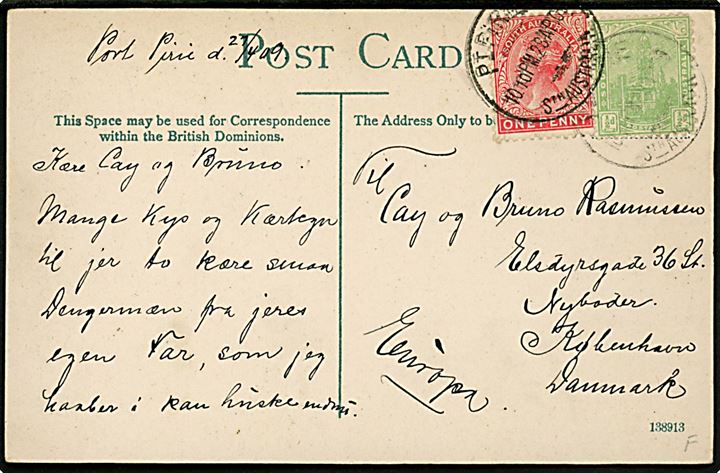 Port Pirie d. 27/4 09
POST CARD
This Space may be used for Correspondence
within the British Dominions.
Kære Cay og Bruno.
Mange Kys og Kærtegn
til jer to kære smaa
Dengermæn fra jeres
egen Far, som jeg
haaber i kan huske endnu.
The Address Only to be
Til
Cay og Bruno Rasmussen
Elsdyrsgade 36 St.
Nyboder.
København
Danmark
Europa
138913
F
SOUTH AUSTRALIA
ONE PENNY
STH AUSTRALIA